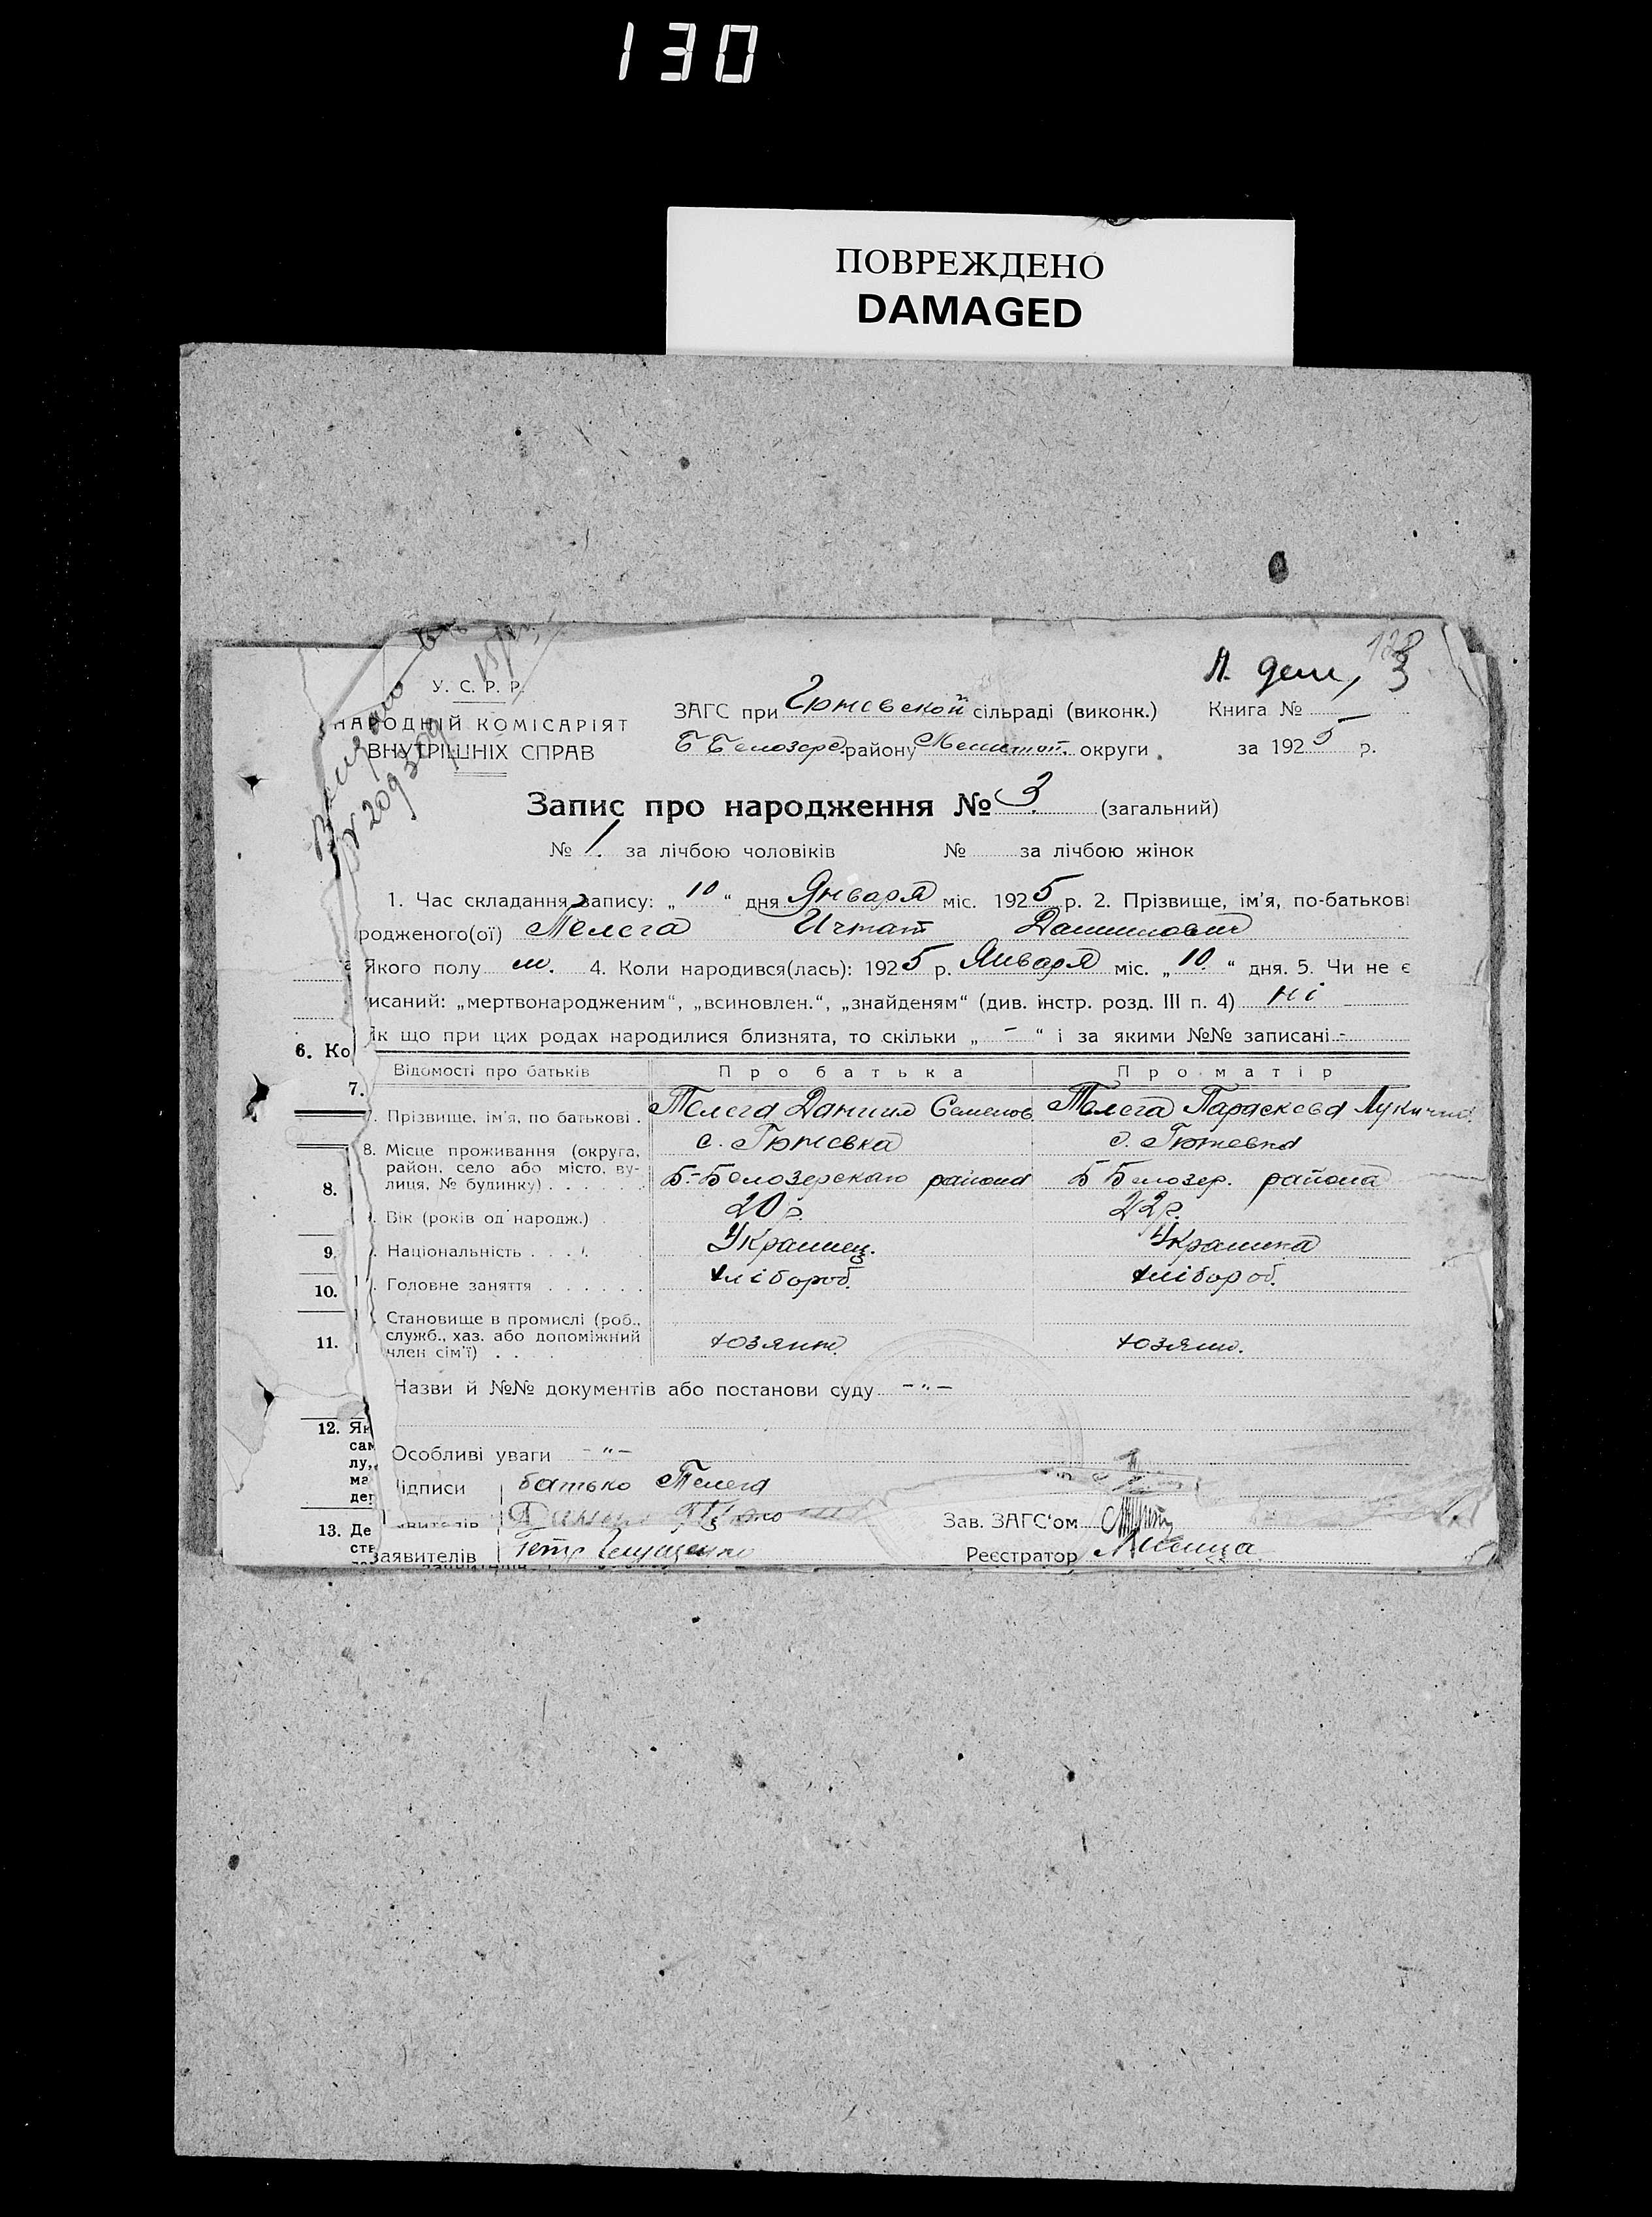 130
ПОВРЕЖДЕНО
DAMAGED
128
3
У. С. Р. Р.
НАРОДНІЙ КОМІСАРІЯТ
ВНУТРІШНІХ СПРАВ
209309
ЗАГС при сільраді (виконк.) Книга №
Б Белозерс. району округи за 1925 р.
Запис про народження № 3 (загальний)
№ 1. за лічбою чоловіків № за лічбою жінок
1. Час складання запису: „ 10 “ дня Января міс. 1925 р. 2. Прізвище, ім'я, по-батькові
родженого(ої) Телега Игнат Даниилович
Якого полу м. 4. Коли народився(лась): 1925 р. Января міс. „ 10 “ дня. 5. Чи не є
исаний: „мертвонародженим“, „всиновлен.“, „знайденям“ (див. інстр. розд. III п. 4) ні
Як що при цих родах народилися близнята, то скільки „ - “ і за якими №№ записані -
6. Ко
Відомості про батьків Про батька Про матір
7.
Прізвище, ім'я, по батькові . Телега Даниил Семенов Телега Параскева Лукична
8. Місце проживання (округа, с. Гюневка с. Гюневка
район, село або місто, ву-
лиця, № будинку) . . . . . . Б-Белозерскаго района Б Белозер. района
8.
Вік (років од народж.) . 20 г. 22 г.
9. Національність . . . . Украинец. Украинка
10. Головне заняття . . . . . . хлібороб. хлібороб.
Становище в промислі (роб.,
11. служб., хаз. або допоміжний
член сім'ї) . . . хозяин. хозяин.
Назви й №№ документів або постанови суду -"-
12. Як
сам
лу,
ма
дег
Особливі уваги -"-
ідписи батько Телега
13. Де
ств
Зав. ЗАГС'ом
заявителів Петр Реєстратор Лисица